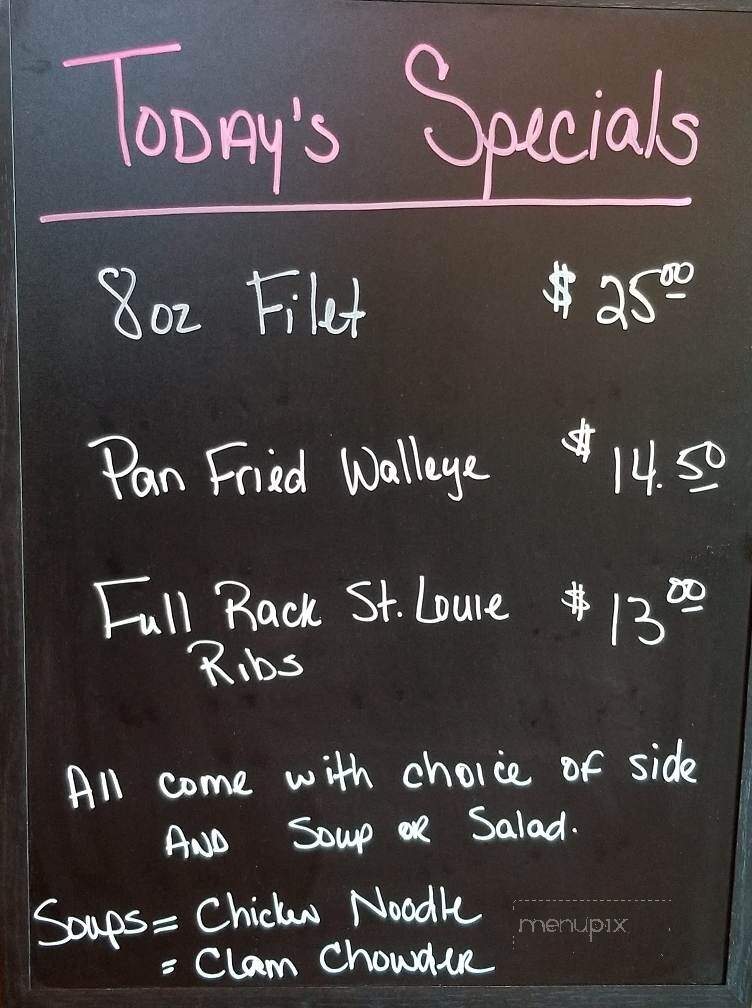 Today's Specials
8oz Filet $ 25.00
Pan Fried Walleye $ 14.50
Full Rack St. Louie $ 13.00
Ribs
All come with choice of side
AND Soup OR Salad.
Soups = Chicken Noodle
= Clam Chowder
menupix